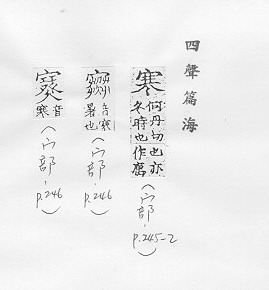 四聲篇海
寒 何丹切也亦冬時也作𡫾(宀部,p.245-2)
音寒暑也(宀部,p.246)
音寒(宀部,p.246)